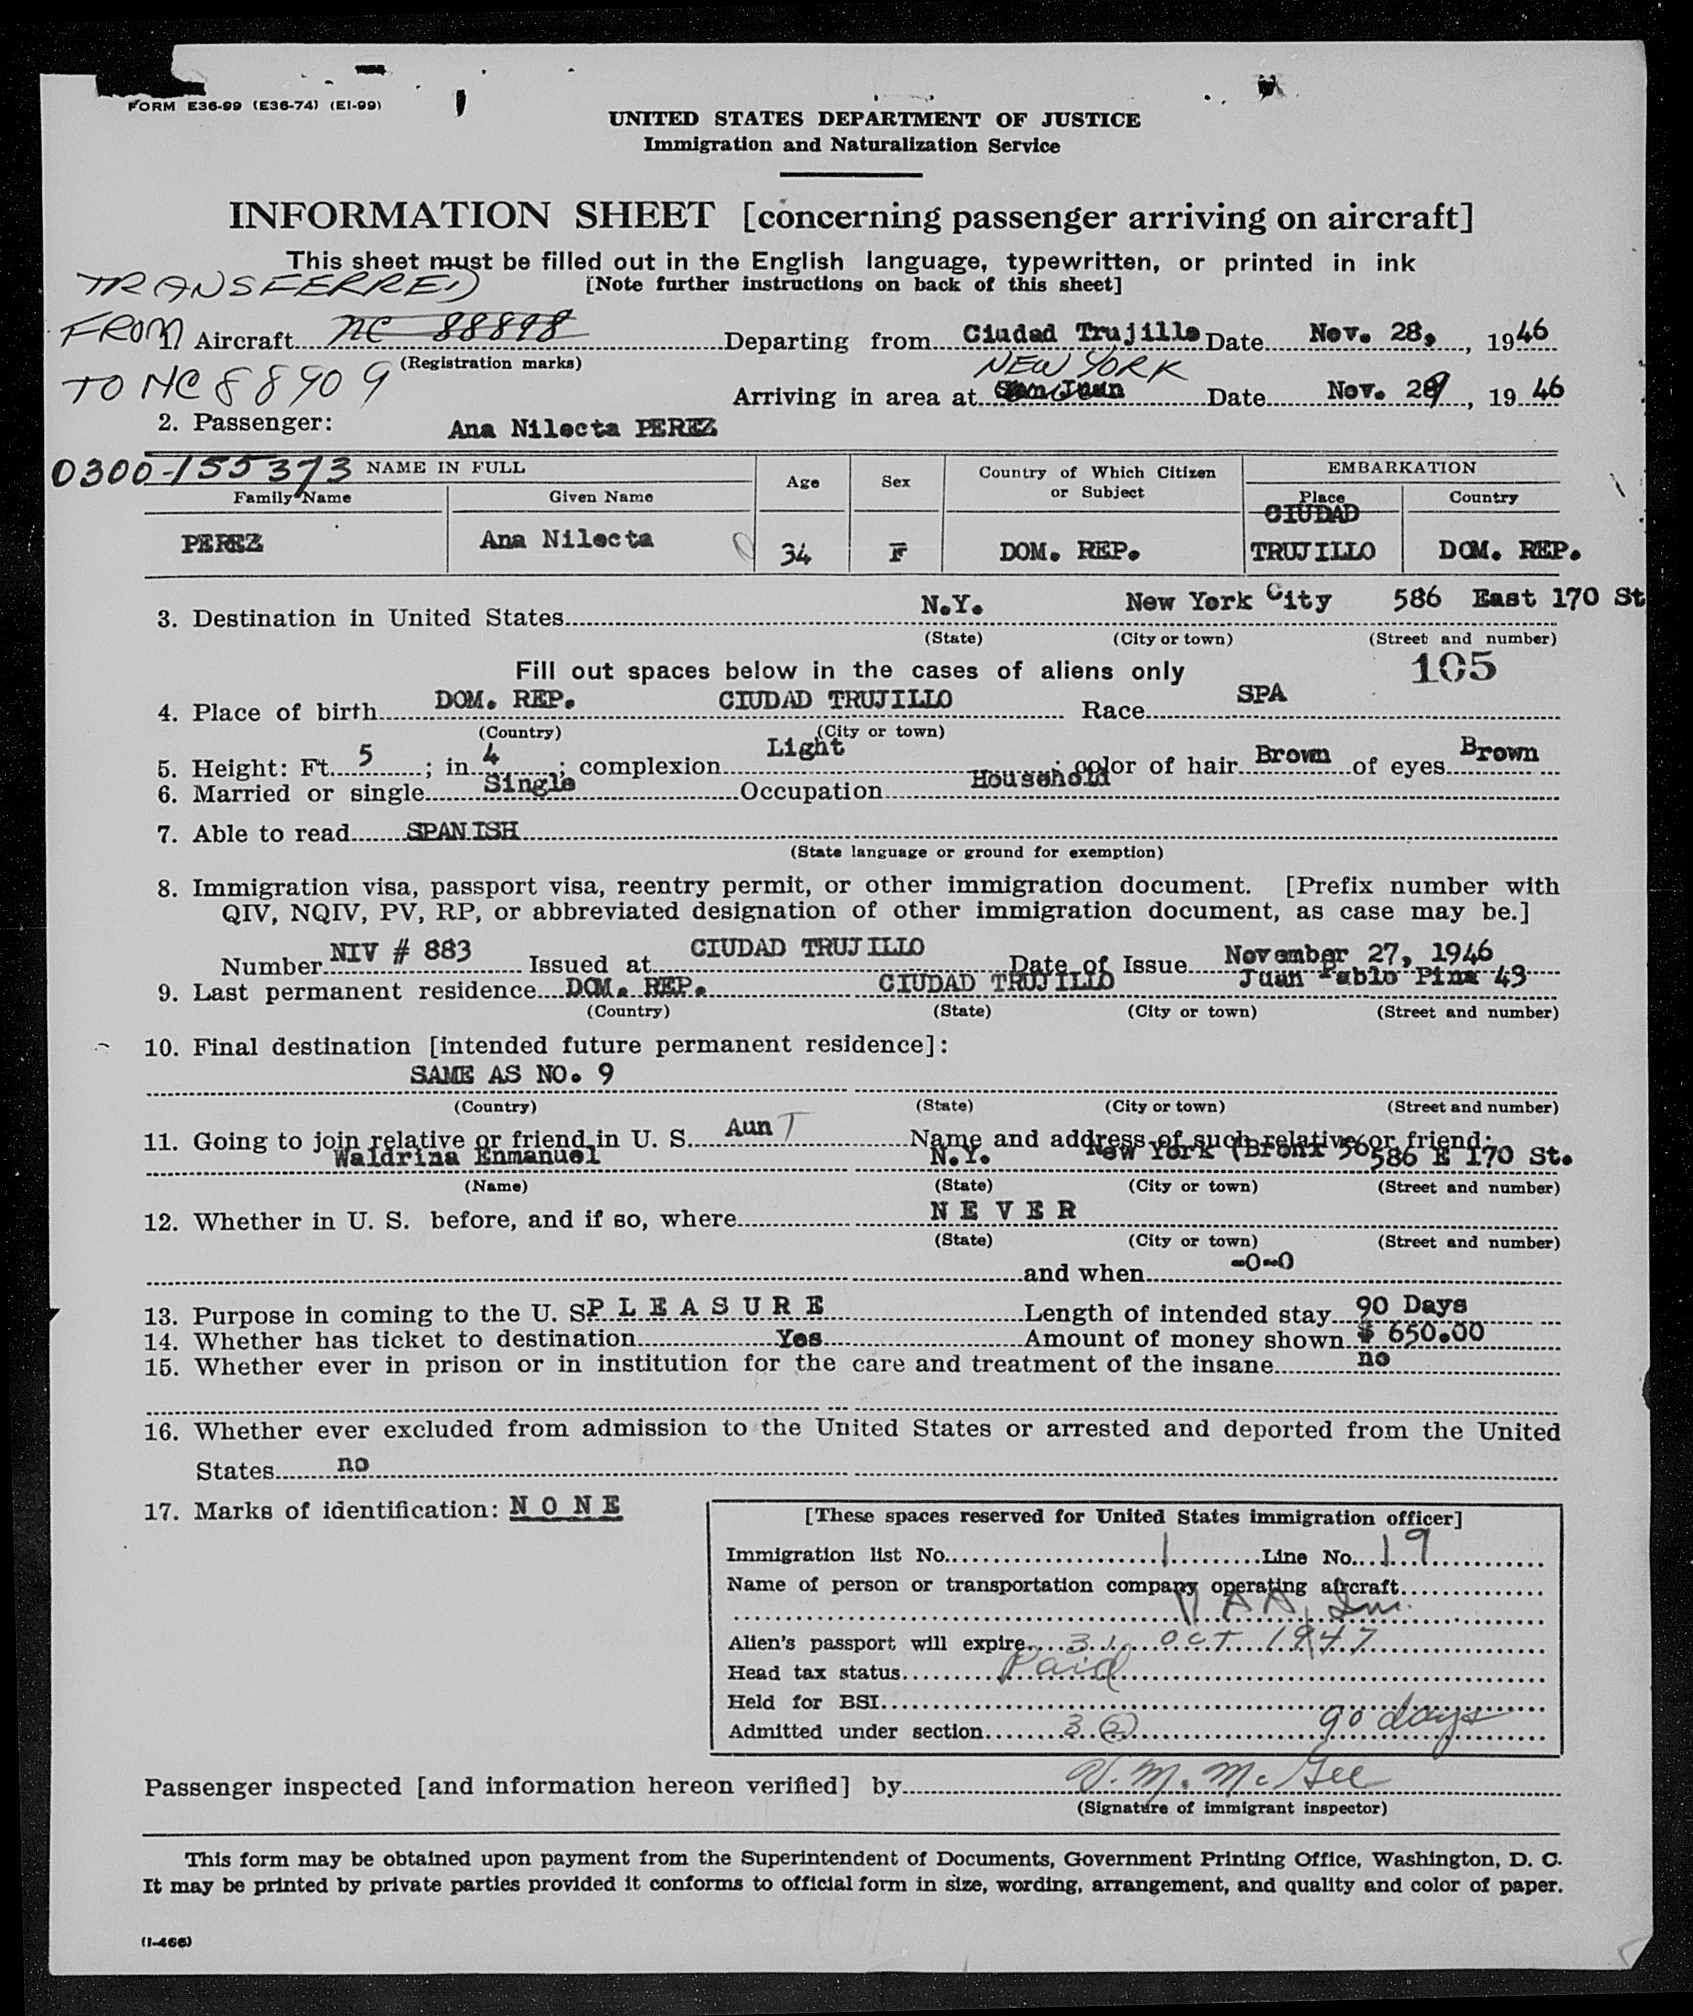 FORM E36-99 (E36-74) (EI-99)
UNITED STATES DEPARTMENT OF JUSTICE
Immigration and Naturalization Service
INFORMATION SHEET [concerning passenger arriving on aircraft]
This sheet must be filled out in the English language, typewritten, or printed in ink
[Note further instructions on back of this sheet]
TRANSFERRED
FROM
1. Aircraft NC 88898 Departing from Ciudad Trujillo Date Nov. 28, 1946
(Registration marks)
NEW YORK
TO NC 88909
Arriving in area at San Juan Date Nov. 29, 1946
2. Passenger: Ana Nilecta PEREZ
0300-155373
NAME IN FULL Age Sex Country of Which Citizen or Subject EMBARKATION
Family Name Given Name Place Country
PEREZ Ana Nilecta 34 F DOM. REP. CIUDAD TRUJILLO DOM. REP.
3. Destination in United States N.Y. New York City 586 East 170 St
(State) (City or town) (Street and number)
Fill out spaces below in the cases of aliens only 105
4. Place of birth DOM. REP. CIUDAD TRUJILLO Race SPA
(Country) (City or town)
5. Height: Ft. 5; in. 4; complexion Light; color of hair Brown of eyes Brown
6. Married or single Single Occupation Household
7. Able to read SPANISH
(State language or ground for exemption)
8. Immigration visa, passport visa, reentry permit, or other immigration document. [Prefix number with
QIV, NQIV, PV, RP, or abbreviated designation of other immigration document, as case may be.]
Number NIV # 883 Issued at CIUDAD TRUJILLO Date of Issue November 27, 1946
9. Last permanent residence DOM. REP. CIUDAD TRUJILLO Juan Pablo Pina 43
(Country) (State) (City or town) (Street and number)
10. Final destination [intended future permanent residence]:
SAME AS NO. 9
(Country) (State) (City or town) (Street and number)
11. Going to join relative or friend in U. S. AunT Name and address of such relative or friend:
Waldrina Enmanuel N.Y. New York (Bronx 56 586 E 170 St.
(Name) (State) (City or town) (Street and number)
12. Whether in U. S. before, and if so, where N E V E R
(State) (City or town) (Street and number)
and when -0-0
13. Purpose in coming to the U. S. P L E A S U R E Length of intended stay 90 Days
14. Whether has ticket to destination Yes Amount of money shown $ 650.00
15. Whether ever in prison or in institution for the care and treatment of the insane no
16. Whether ever excluded from admission to the United States or arrested and deported from the United
States no
17. Marks of identification: N O N E
[These spaces reserved for United States immigration officer]
Immigration list No. 1 Line No. 19
Name of person or transportation company operating aircraft
PAA, Inc.
Alien's passport will expire 31 Oct 1947
Head tax status Paid
Held for BSI
Admitted under section 3 (2) 90 days
Passenger inspected [and information hereon verified] by V. M. McGee
(Signature of immigrant inspector)
This form may be obtained upon payment from the Superintendent of Documents, Government Printing Office, Washington, D. C.
It may be printed by private parties provided it conforms to official form in size, wording, arrangement, and quality and color of paper.
(I-466)